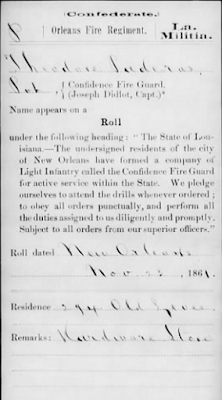 (Confederate.)
8 Orleans Fire Regiment. La. Militia.
Theodore
{ Confidence Fire Guard,
{ (Joseph Didlot, Capt.)*
Name appears on a
Roll
under the following heading: "The State of Lou-
isiana.—The undersigned residents of the city
of New Orleans have formed a company of
Light Infantry called the Confidence Fire Guard
for active service within the State. We pledge
ourselves to attend the drills whenever ordered;
to obey all orders punctually, and perform all
the duties assigned to us diligently and promptly.
Subject to all orders from our superior officers."
Roll dated New Orleans
Nov. 23, 1861.
Residence 294 Old Levee
Remarks: Hardware Store